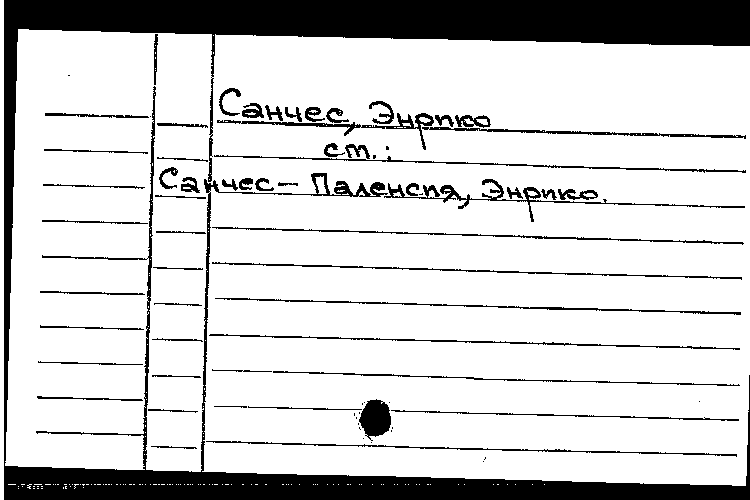 Санчес, Энрико
ст.:
Санчес - Паленсия, Энрико.